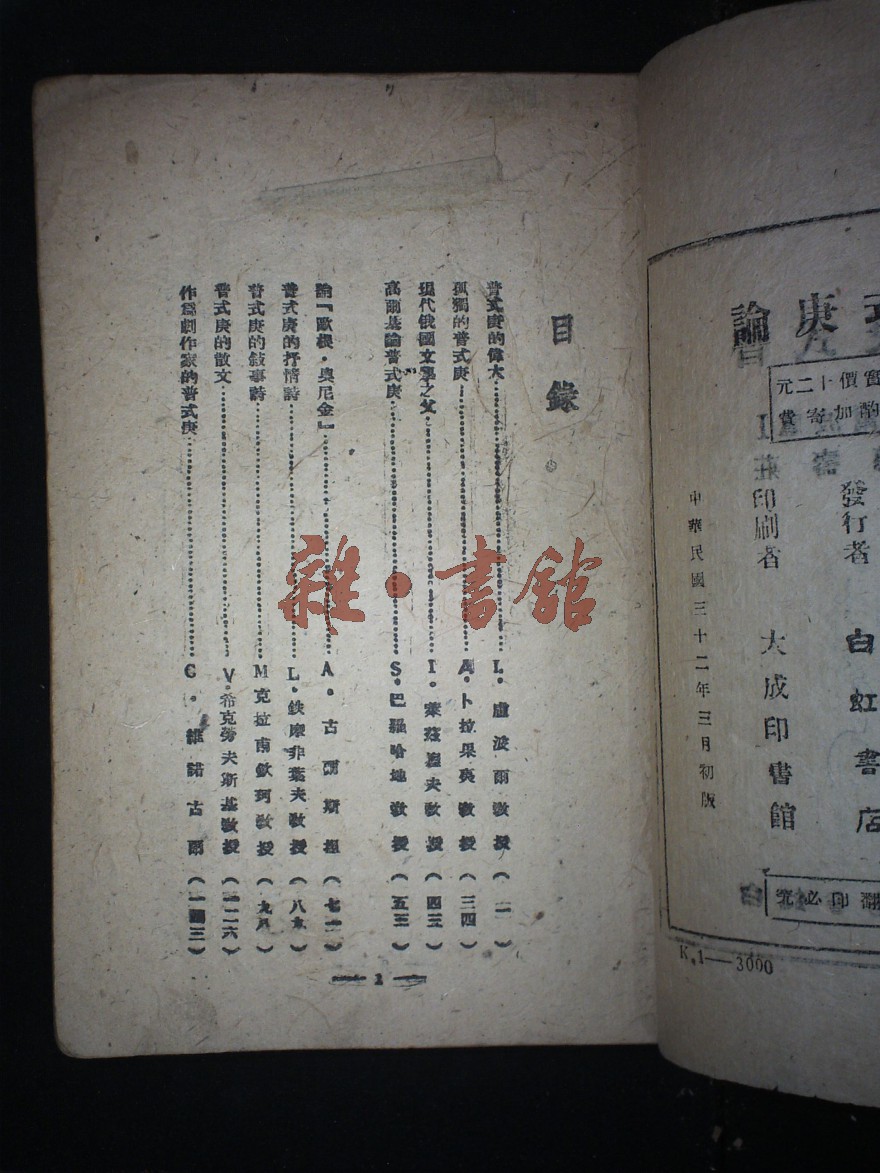 目錄
普式庚的偉大……L·盧波爾教授（一）
孤獨的普式庚……A·卜拉果夷教授（三四）
現代俄國文學之父……I·萊茲涅夫教授（四三）
高爾基論普式庚……S·巴羅哈地教授（五三）
論『歐根·奧尼金』……A·古爾斯坦（七一）
普式庚的抒情詩……L·鉄摩非葉夫教授（八九）
普式庚的敍事詩……M克拉甫欽珂教授（九八）
普式庚的散文……V·希克勞夫斯基教授（一二六）
作爲劇作家的普式庚……C·維諾古爾（一四三）
1
論庚
實價十二元
酌加寄費
發行者 白虹書店
印刷者 大成印書館
中華民國三十二年三月初版
翻印必究
K.1—3000
雜·書館